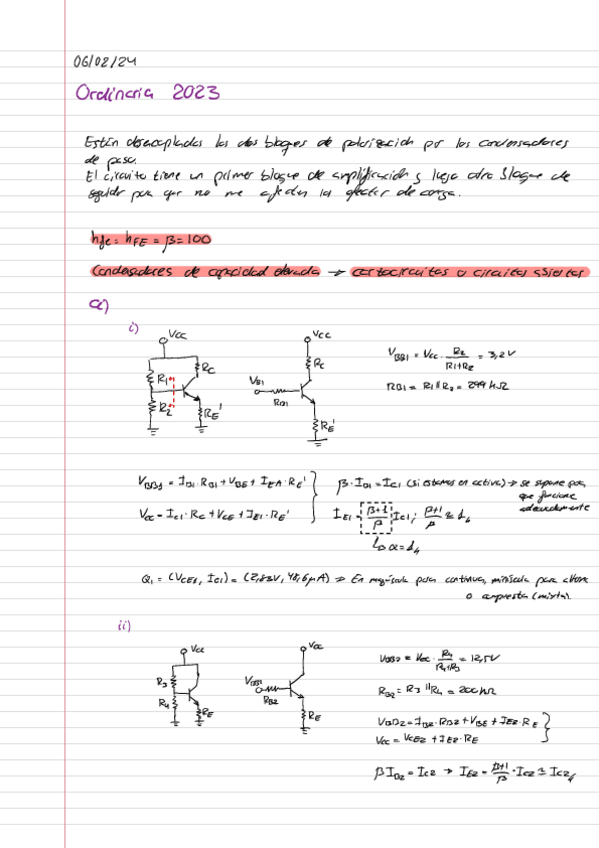 06/02/24
Ordinaria 2023
Están desacoplados los dos bloques de polarización por los condensadores
de paso.
El circuito tiene un primer bloque de amplificación y luego otro bloque de
seguidor para que no me afecten los efectos de carga.
hfe = hFE = β = 100
Condensadores de capacidad elevada → cortocircuitos o circuitos abiertos
a)
i)
VCC
R1
R2
RC
RE'
VCC
RC
VB1
RB1
RE'
VBB1 = VCC · R2/(R1+R2) = 3,2V
RB1 = R1 || R2 = 299 kΩ
VBB1 = IB1 · RB1 + VBE + IE1 · RE'
VCC = IC1 · RC + VCE + IE1 · RE'
β · IB1 = IC1 (si estamos en activa) → se supone para
que funcione
adecuadamente
IE1 = (β+1)/β IC1 ; (β+1)/β ≈ 1
↳ α = 1
Q1 = (VCE1, IC1) = (2,82V, 48,6μA) ⇒ En mayúscula para continua, minúscula para alterna
o compuesta (mixta)
ii)
VCC
R3
R4
RE
VCC
VBB1
RB2
RE
VBB2 = VCC · R4/(R4+R3) = 12,5V
RB2 = R3 || R4 = 200 kΩ
VBB2 = IB2 · RB2 + VBE + IE2 · RE
VCC = VCE2 + IE2 · RE
β IB2 = IC2 → IE2 = (β+1)/β · IC2 ≈ IC2